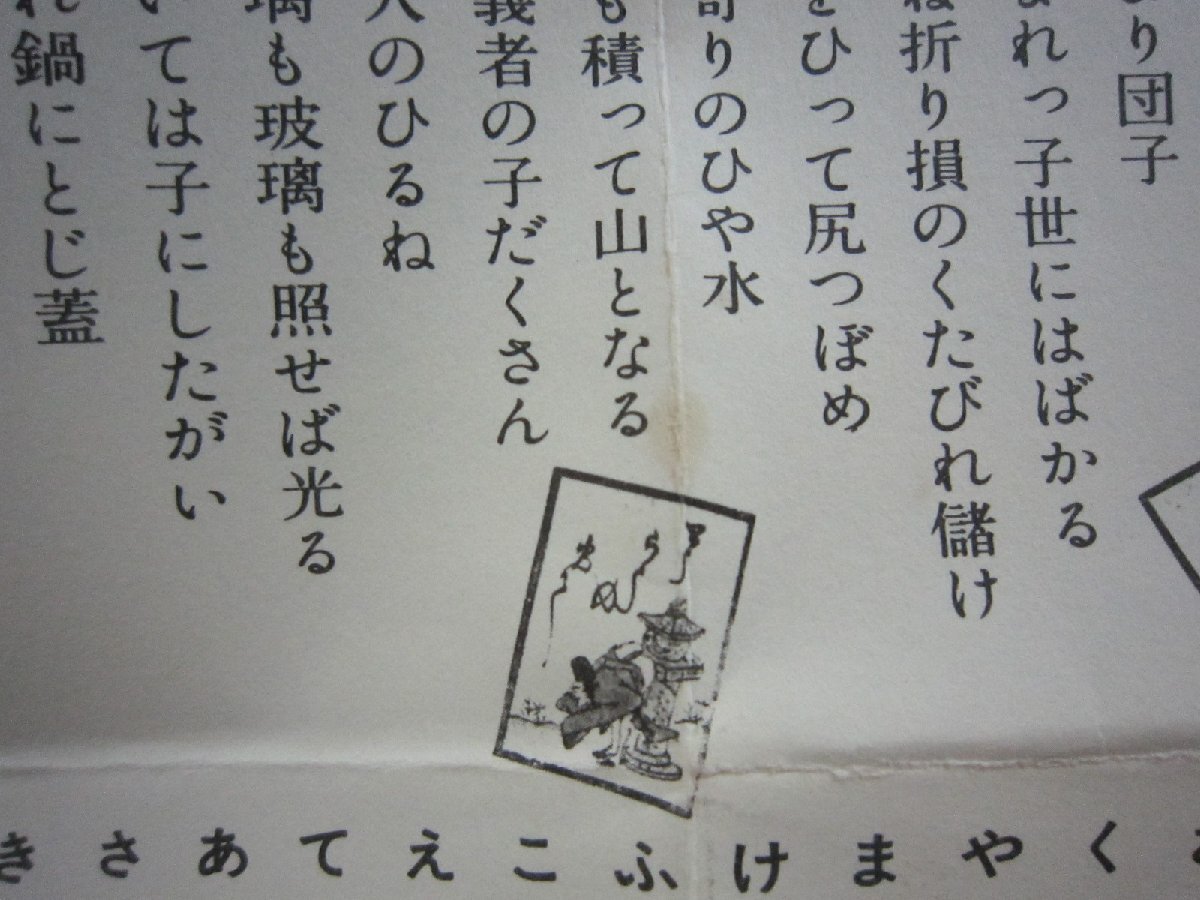 り団子
れっ子世にはばかる
折り損のくたびれ儲け
ひって尻つぼめ
りのひや水
も積って山となる
義者の子だくさん
のひるね
璃も玻璃も照せば光る
いては子にしたがい
れ鍋にとじ蓋
くやまけふこえてあさき